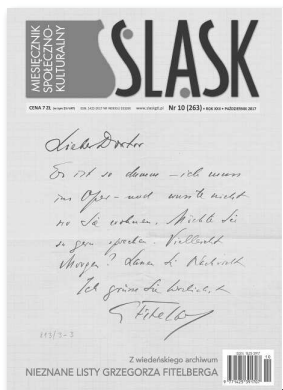 MIESIĘCZNIK
SPOŁECZNO-
KULTURALNY
ŚLĄSK
CENA 7 ZŁ
Nr 10 (263) • ROK XXII • PAŹDZIERNIK 2017
Lieber Doctor
Es ist so dumm – ich muss
ins Oper – und wusste nicht
wo Sie wohnen. Möchte Sie
so gern sprechen. Vielleicht
Morgen? Lassen Sie Nachricht
Ich grüsse Sie herzlich,
G Fitelberg
Z wiedeńskiego archiwum
NIEZNANE LISTY GRZEGORZA FITELBERGA